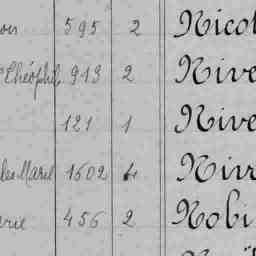 595 2 Nicol
Théophil 913 2 Nive
121 1 Nive
Marie 1602 4 Nivr
erie 456 2 Nobi